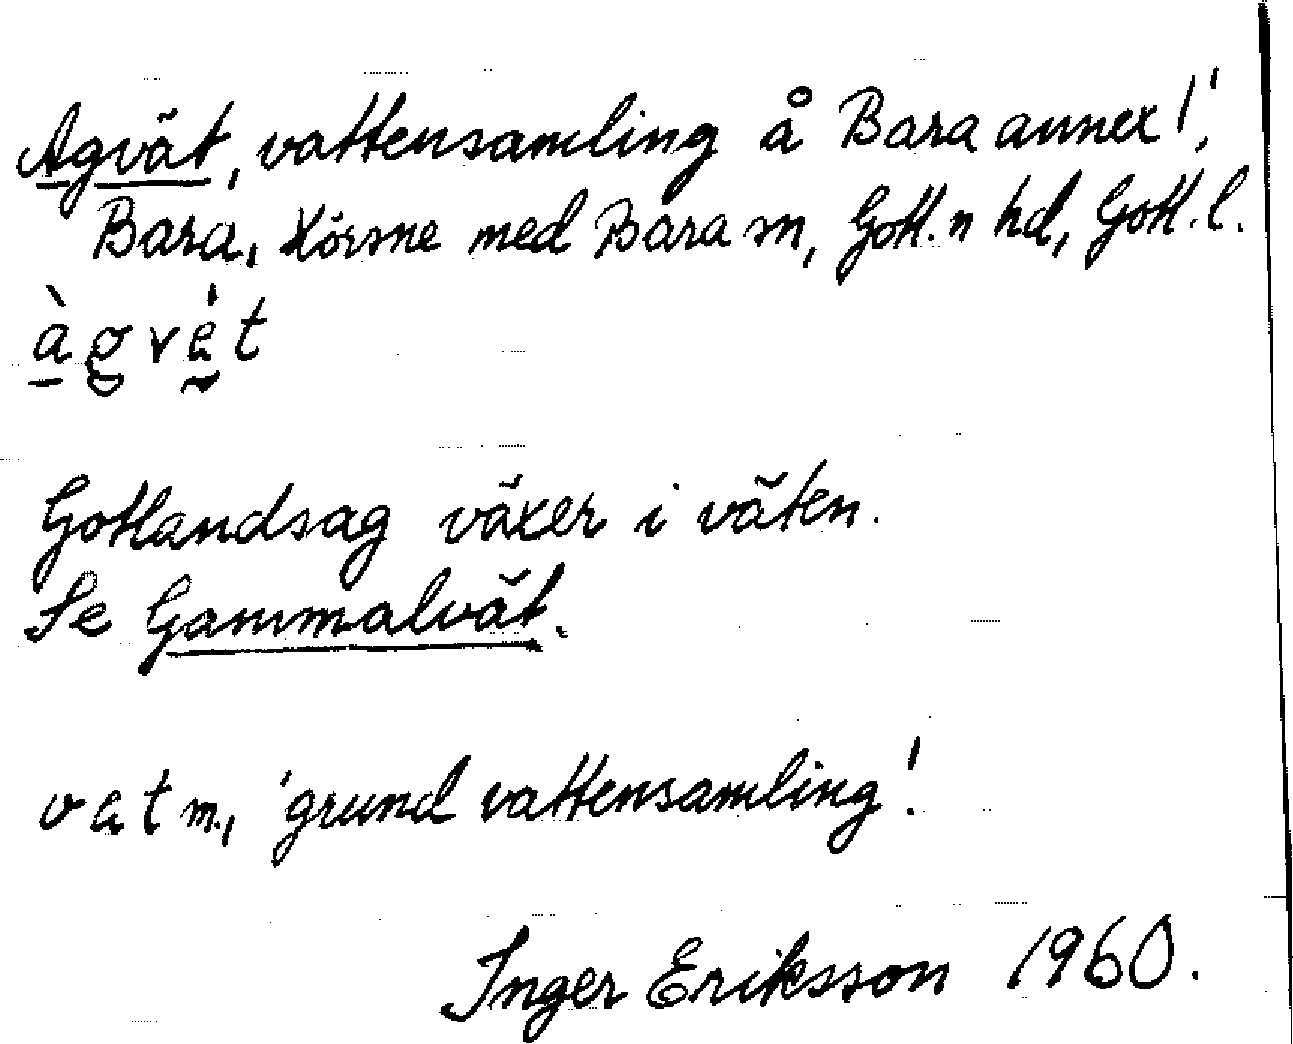 Agvät, vattensamling å Bara annex 1',
Bara, Hörsne med Bara sn, Gotl. n hd, Gotl. l.
àgvä́t
Gotlandsag växer i väten.
Se Gammalvät.
vät m., 'grund vattensamling'.
Inger Eriksson 1960.